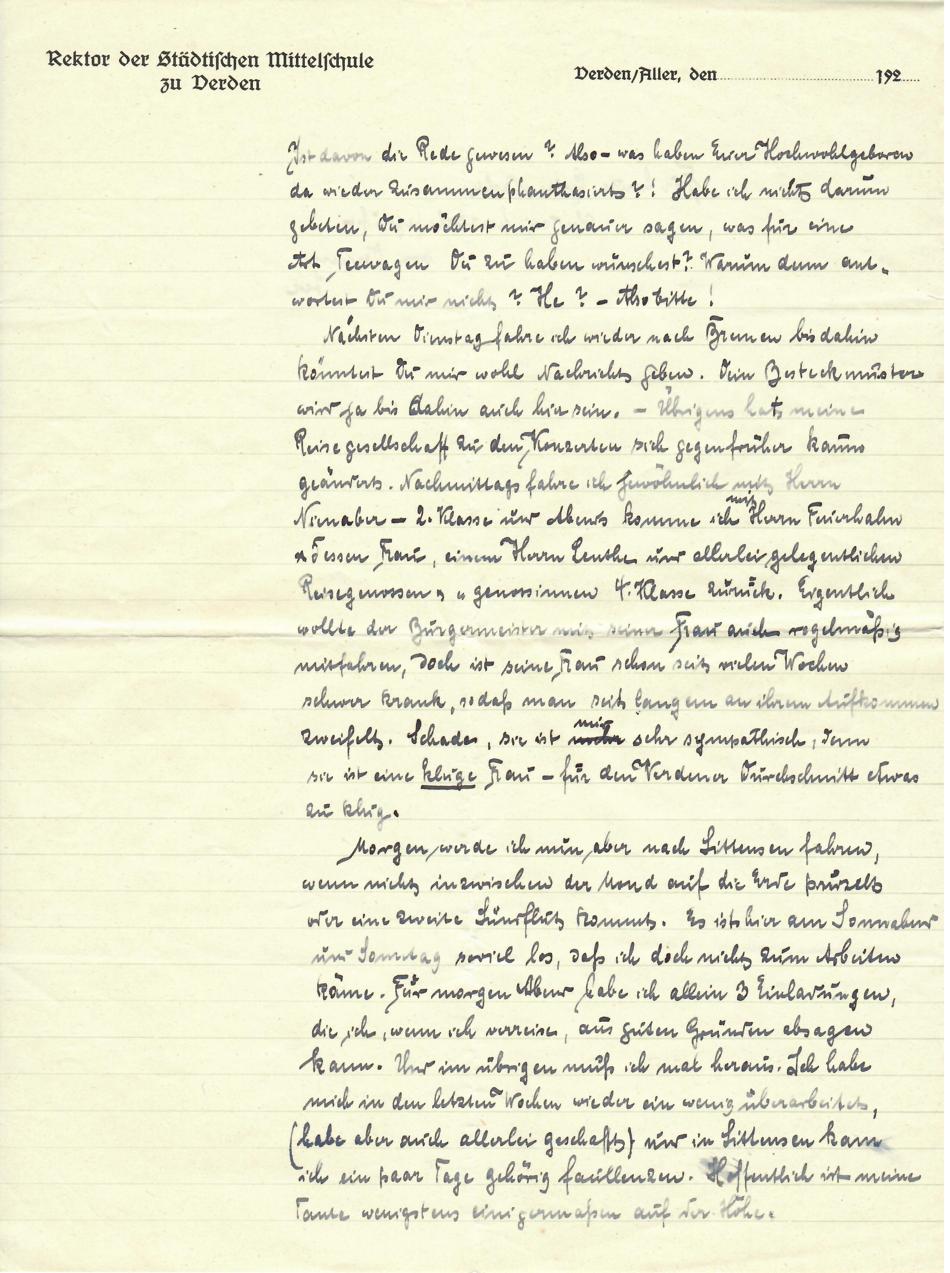 Rektor der Städtischen Mittelschule
zu Verden
Verden/Aller, den 192
Ist davon die Rede gewesen? Also – was haben Euer Hochwohlgeboren
da wieder zusammenphanthasiert?! Habe ich nicht darum
gebeten, Du möchtest mir genauer sagen, was für eine
Art Teewagen Du zu haben wünschest? Warum denn ant-
wortest Du mir nicht? He? – Also bitte!
Nächsten Dienstag fahre ich wieder nach Bremen bis dahin
könntest Du mir wohl Nachricht geben. Dein Besteckmuster
wird ja bis dahin auch hier sein. – Übrigens hat meine
Reisegesellschaft zu den Konzerten sich gegen früher kaum
geändert. Nachmittags fahre ich gewöhnlich mit Herrn
Nienaber – 2. Klasse und Abends komme ich mit Herrn Feuerhahn
u dessen Frau, einem Herrn Lenthe und allerlei gelegentlichen
Reisegenossen u. genossinnen 4. Klasse zurück. Eigentlich
wollte der Bürgermeister mit seiner Frau auch regelmäßig
mitfahren, doch ist seine Frau schon seit vielen Wochen
schwer krank, sodaß man seit langem an ihrem Aufkommen
zweifelt. Schade, sie ist mir sehr sympathisch, denn
sie ist eine kluge Frau – für den Verdener Durchschnitt etwas
zu klug.
Morgen werde ich nun aber nach Sittensen fahren,
wenn nicht inzwischen der Mond auf die Erde purzelt
oder eine zweite Sündflut kommt. Es ist hier am Sonnabend
und Sonntag soviel los, daß ich doch nicht zum Arbeiten
käme. Für morgen Abend habe ich allein 3 Einladungen,
die ich, wenn ich verreise, aus guten Gründen absagen
kann. Und im übrigen muß ich mal heraus. Ich habe
mich in den letzten Wochen wieder ein wenig überarbeitet,
(habe aber auch allerlei geschafft) und in Sittensen kann
ich ein paar Tage gehörig faullenzen. Hoffentlich ist meine
Tante wenigstens einigermaßen auf der Höhe.